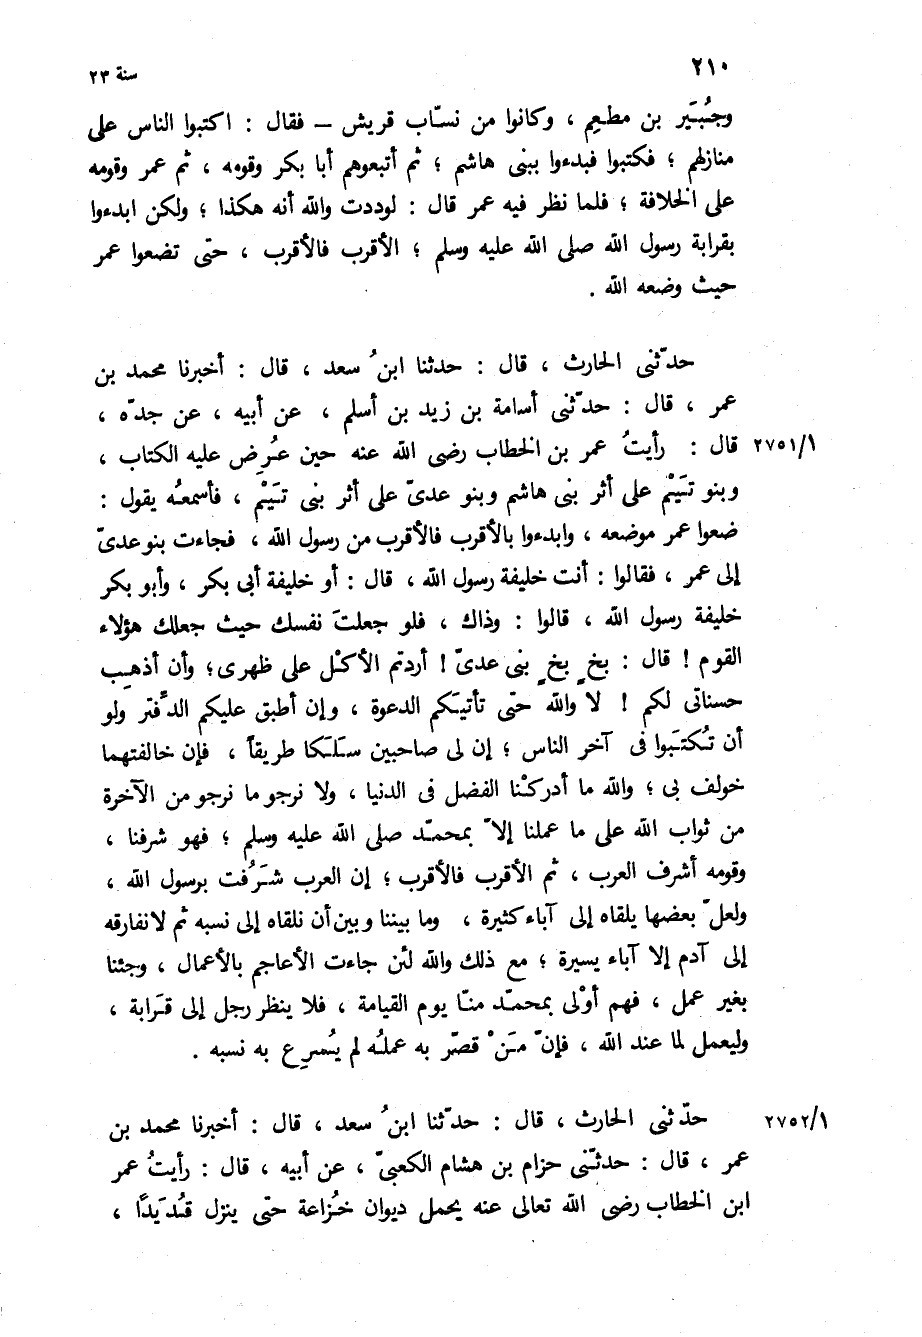 ٢١٠
سنة ٢٣
وجُبَير بن مطعِم ، وكانوا من نسّاب قريش – فقال : اكتبوا الناس على
منازلهم ؛ فكتبوا فبدءوا ببنى هاشم ؛ ثم أتبعوهم أبا بكر وقومه ، ثم عمر وقومه
على الخلافة ؛ فلما نظر فيه عمر قال : لوددت والله أنه هكذا ؛ ولكن ابدءوا
بقرابة رسول الله صلى الله عليه وسلم ؛ الأقرب فالأقرب ، حتّى تضعوا عمر
حيث وضعه الله .
حدّثنى الحارث ، قال : حدثنا ابنُ سعد ، قال : أخبرنا محمد بن
عمر ، قال : حدّثنى أسامة بن زيد بن أسلم ، عن أبيه ، عن جدّه ،
٢٧٥١/١ قال : رأيتُ عمر بن الخطاب رضى الله عنه حين عُرِض عليه الكتاب ،
وبنو تَيْم على أثر بنى هاشم وبنو عدىّ على أثر بنى تَيْم ، فأسمعُه يقول :
ضعوا عمر موضعه ، وابدءوا بالأقرب فالأقرب من رسول الله ، فجاءت بنو عدىّ
إلى عمر ، فقالوا : أنت خليفة رسول الله ، قال : أو خليفة أبى بكر ، وأبو بكر
خليفة رسول الله ، قالوا : وذاك ، فلو جعلتَ نفسك حيث جعلك هؤلاء
القوم ! قال : بخٍ بخٍ بنى عدىّ ! أردتم الأكْل على ظهرى ؛ وأن أذهِب
حسناتى لكم ! لا والله حتّى تأتيَكم الدعوة ، وإن أطبق عليكم الدَّفتر ولو
أن تُكتَبوا فى آخر الناس ؛ إن لى صاحبين سَلَكا طريقاً ، فإن خالفتهما
خولف بى ؛ والله ما أدركْنا الفضل فى الدنيا ، ولا نرجو ما نرجو من الآخرة
من ثواب الله على ما عملنا إلاّ بمحمّد صلى الله عليه وسلم ؛ فهو شرفنا ،
وقومه أشرف العرب ، ثم الأقرب فالأقرب ؛ إن العرب شَرُفت برسول الله ،
ولعلّ بعضها يلقاه إلى آباء كثيرة ، وما بيننا وبين أن نلقاه إلى نسبه ثم لا نفارقه
إلى آدم إلا آباء يسيرة ؛ مع ذلك والله لئن جاءت الأعاجم بالأعمال ، وجئنا
بغير عمل ، فهم أوْلى بمحمّد منّا يوم القيامة ، فلا ينظر رجل إلى قَرابة ،
وليعمل لما عند الله ، فإنّ مَنْ قصّر به عملُه لم يُسرِع به نسبه .
٢٧٥٢/١ حدّثنى الحارث ، قال : حدّثنا ابنُ سعد ، قال : أخبرنا محمد بن
عمر ، قال : حدثّنى حزام بن هشام الكعبىّ ، عن أبيه ، قال : رأيتُ عمر
ابن الخطاب رضى الله تعالى عنه يحمل ديوان خُزاعة حتّى ينزل قُدَيدًا ،